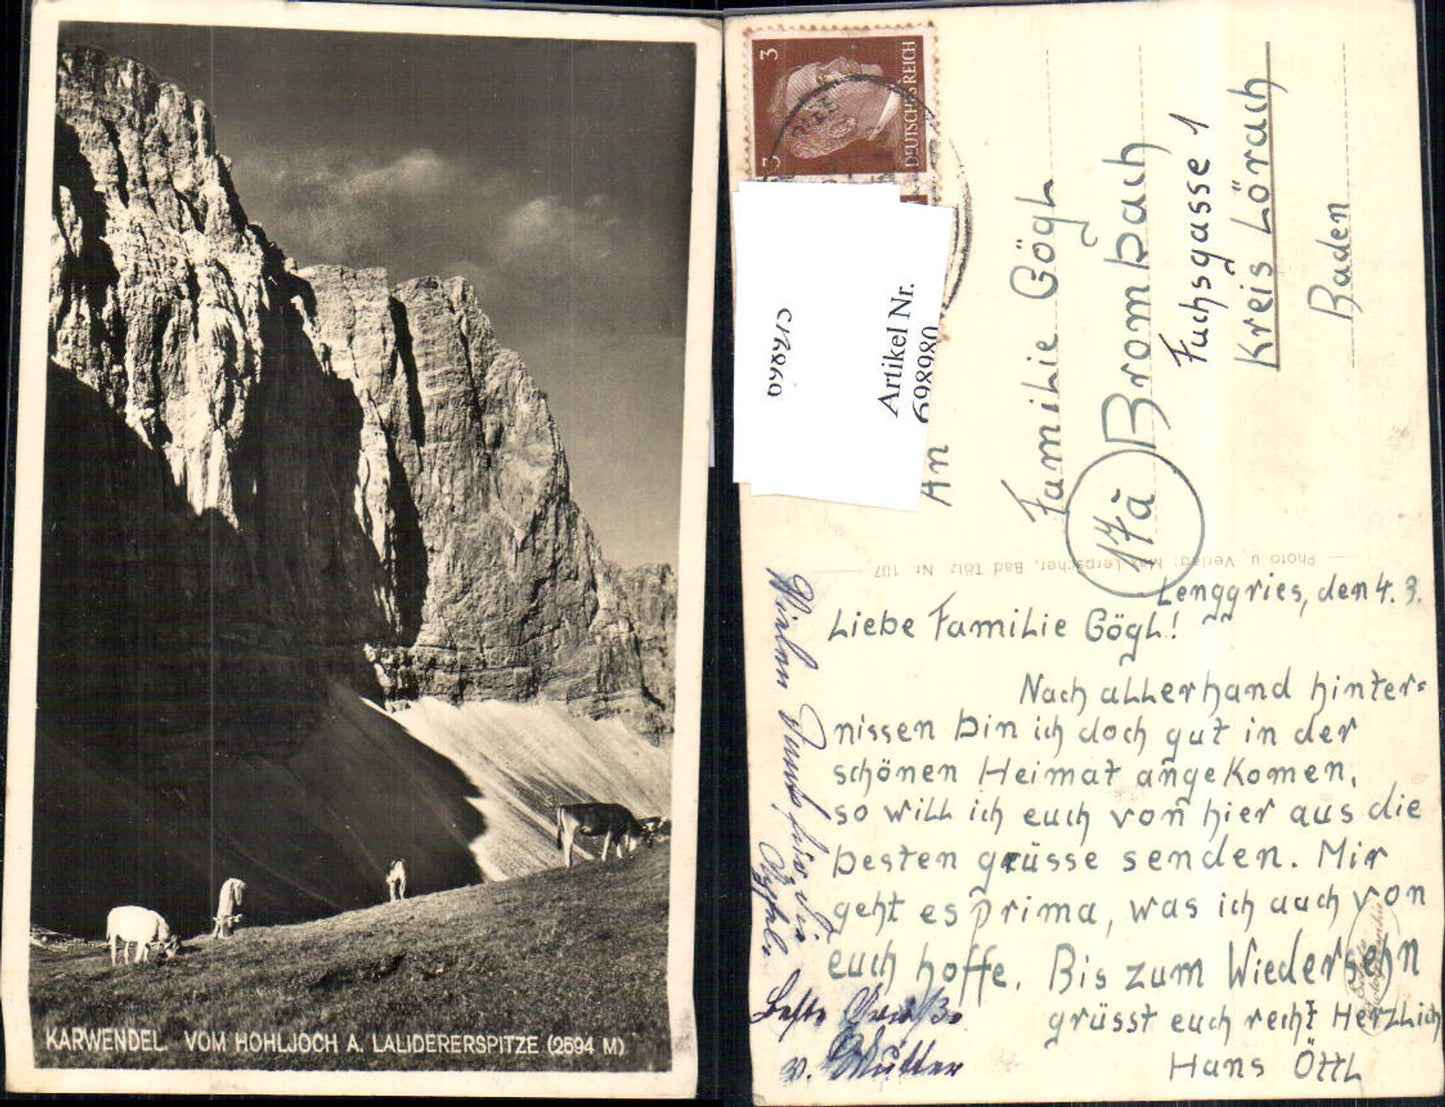 KARWENDEL. VOM HOHLJOCH A. LALIDERERSPITZE (2594 M)
3
3
DEUTSCHES REICH
69860
Artikel Nr.
698980
An
Familie Gögl
17a Brombach
Fuchsgasse 1
Kreis Lörach
Baden
Photo u. Verlag: Max Lerpscher, Bad Tölz Nr. 107
Lenggries, den 4. 9.
Liebe Familie Gögl!
Nach allerhand hinter=
nissen bin ich doch gut in der
schönen Heimat angekomen,
so will ich euch von hier aus die
besten grüsse senden. Mir
geht es prima, was ich auch von
euch hoffe. Bis zum Wiedersehn
grüsst euch recht Herzlich
Hans Öttl
Vielen Dank für die
Äpfel.
Beste Grüße
v. Mutter